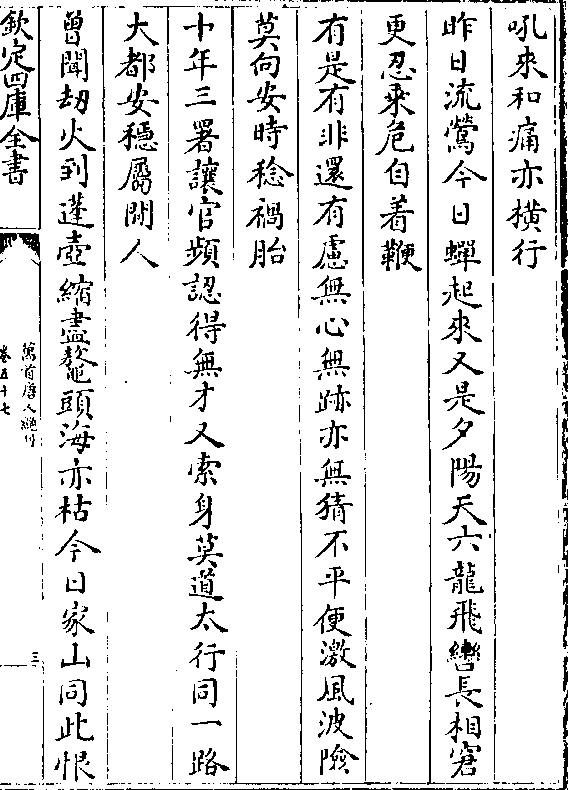 吼來和痛亦橫行
昨日流鶯今日蟬起來又是夕陽天六龍飛轡長相窘
更忍乘危自着鞭
有是有非還有慮無心無跡亦無猜不平便激風波險
莫向安時稔禍胎
十年三署讓官頻認得無才又索身莫道太行同一路
大都安穩屬閒人
曾聞劫火到蓬壺縮盡鼇頭海亦枯今日家山同此恨
欽定四庫全書
萬首唐人絶句
卷五十七
三